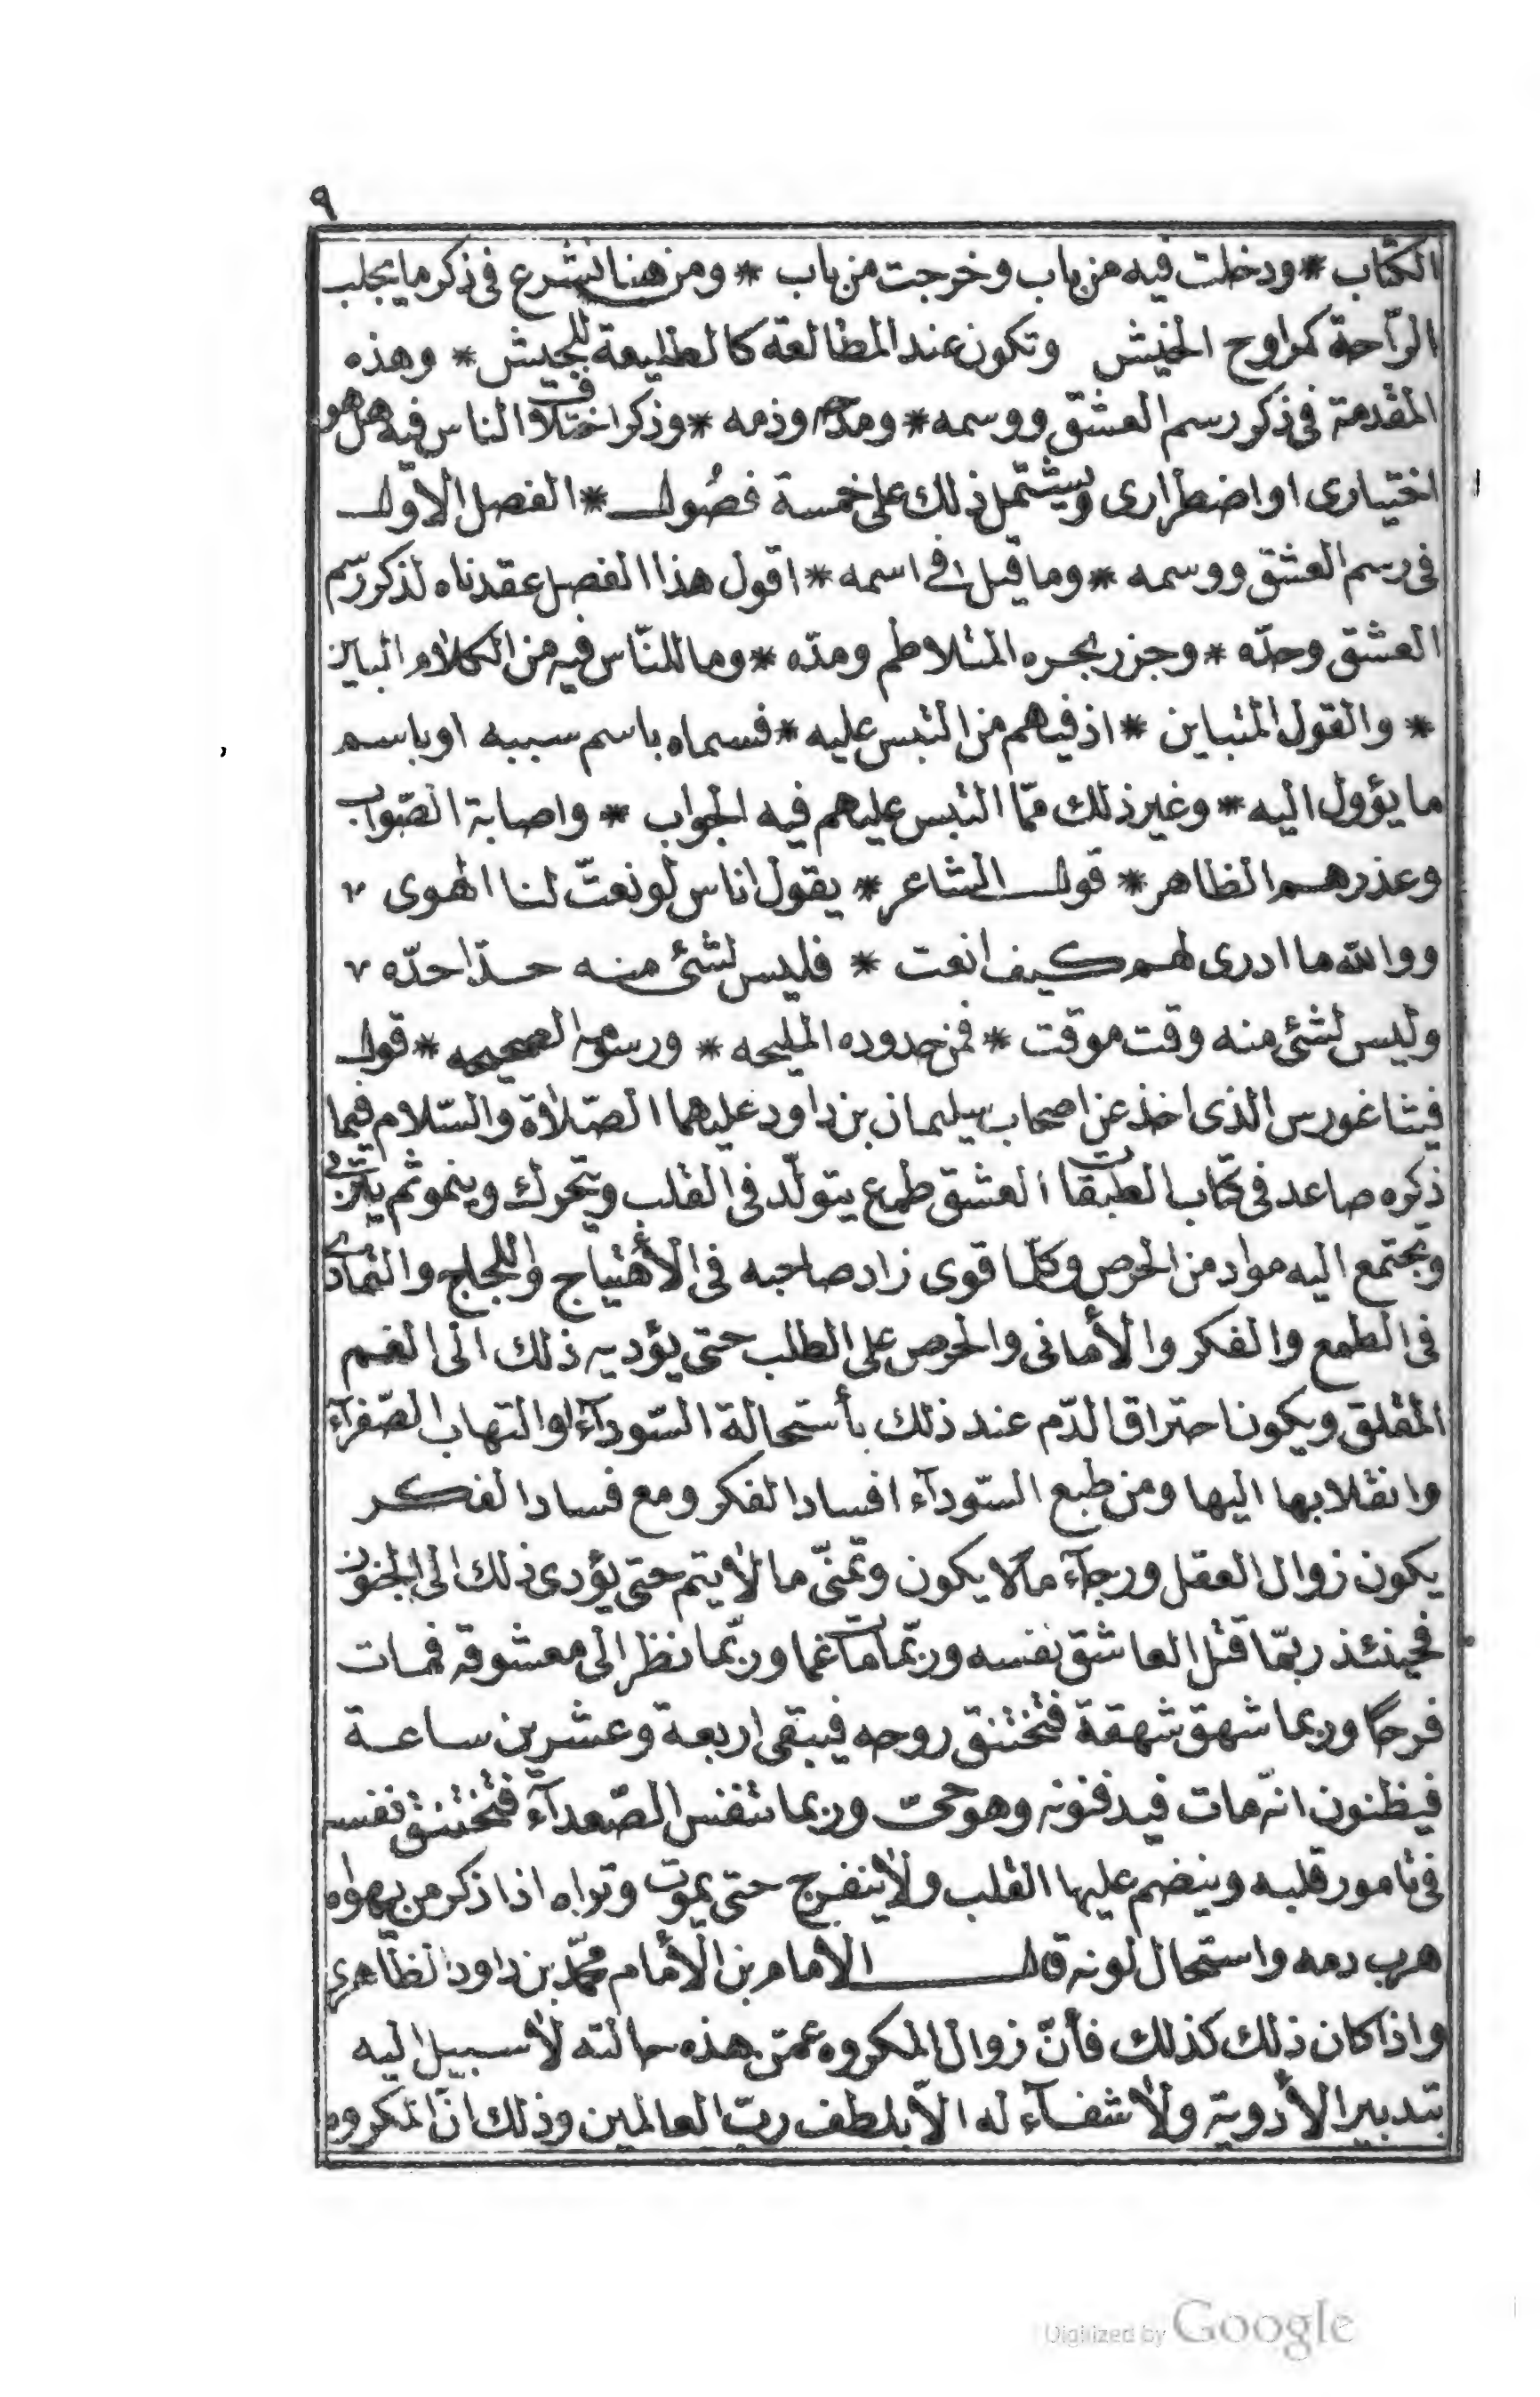 ٩
الكتاب * ودخلت فيه من باب وخرجت من باب * ومن هنا نشرع فى ذكر ما يجلب
الرّاحة كمراوح الخيش وتكون عند المطالعة كالطليعة للجيش * وهذه
المقدمة فى ذكر رسم العشق ووسمه * ومدحه وذمه * وذكر اختلاف الناس فيه هل هو
اختيارى او اضطرارى ويشتمل ذلك على خمسة فصُول * الفصل الاوّل
فى رسم العشق ووسمه * وما قيل فى اسمه * اقول هذا الفصل عقدناه لذكر رسم
العشق وحدّه * وجزر بحره المتلاطم ومدّه * وما للنّاس فيه من الكلام البائن
* والقول المتباين * اذ فيهم من التبس عليه * فسماه باسم سببه او باسم
ما يؤول اليه * وغير ذلك ممّا التبس عليهم فيه الجواب * واصابة الصّواب
وعذرهم الظاهر * قول الشاعر * يقول اناس لو نعتّ لنا الهوى
ووالله ما ادرى لهم كيف انعت * فليس لشئ منه حدّا حدّه
وليس لشئ منه وقت موقت * فمن حدوده المليحه * ورسومه الصحيحه * قول
فيثاغورس الذى اخذ عن اصحاب سليمان بن داود عليهما الصّلاة والسّلام فيما
ذكره صاعد فى كتاب الطبقات العشق طمع يتولّد فى القلب ويتحرك وينمو ثم يتربى
وتجتمع اليه مواد من الحرص وكلّما قوى زاد صاحبه فى الأهتياج واللجلج والتمادى
فى الطمع والفكر والأمانى والحرص على الطلب حتى يؤديه ذلك الى الغم
المقلق ويكون احتراق الدّم عند ذلك بأستحالة السّودآء او التهاب الصّفرآء
وانقلابها اليها ومن طبع السّودآء افساد الفكر ومع فساد الفكر
يكون زوال العقل ورجآء ما لا يكون وتمنّى ما لا يتم حتى يؤدى ذلك الى الجنون
فحينئذ ربمّا قتل العاشق نفسه وربّما مات غما وربّما نظر الى معشوقه فمات
فرحًا وربما شهق شهقة فتختنق روحه فيبقى اربعة وعشرين ساعة
فيظنون انّه مات فيدفنونه وهو حىّ وربما تنفس الصّعدآء فتختنق نفسه
فى تامور قلبه وينضم عليها القلب ولا ينفرج حتى يموت وتراه اذا ذكر من يهواه
هرب دمه واستحال لونه قال الامام بن الأمام محمّد بن داود الظاهرى
واذا كان ذلك كذلك فأنّ زوال المكروه عمّن هذه حالته لا سبيل اليه
بتدبير الأدوية ولا شفآء له الاّ بلطف ربّ العالمين وذلك انّ المكروه
Digitized by Google